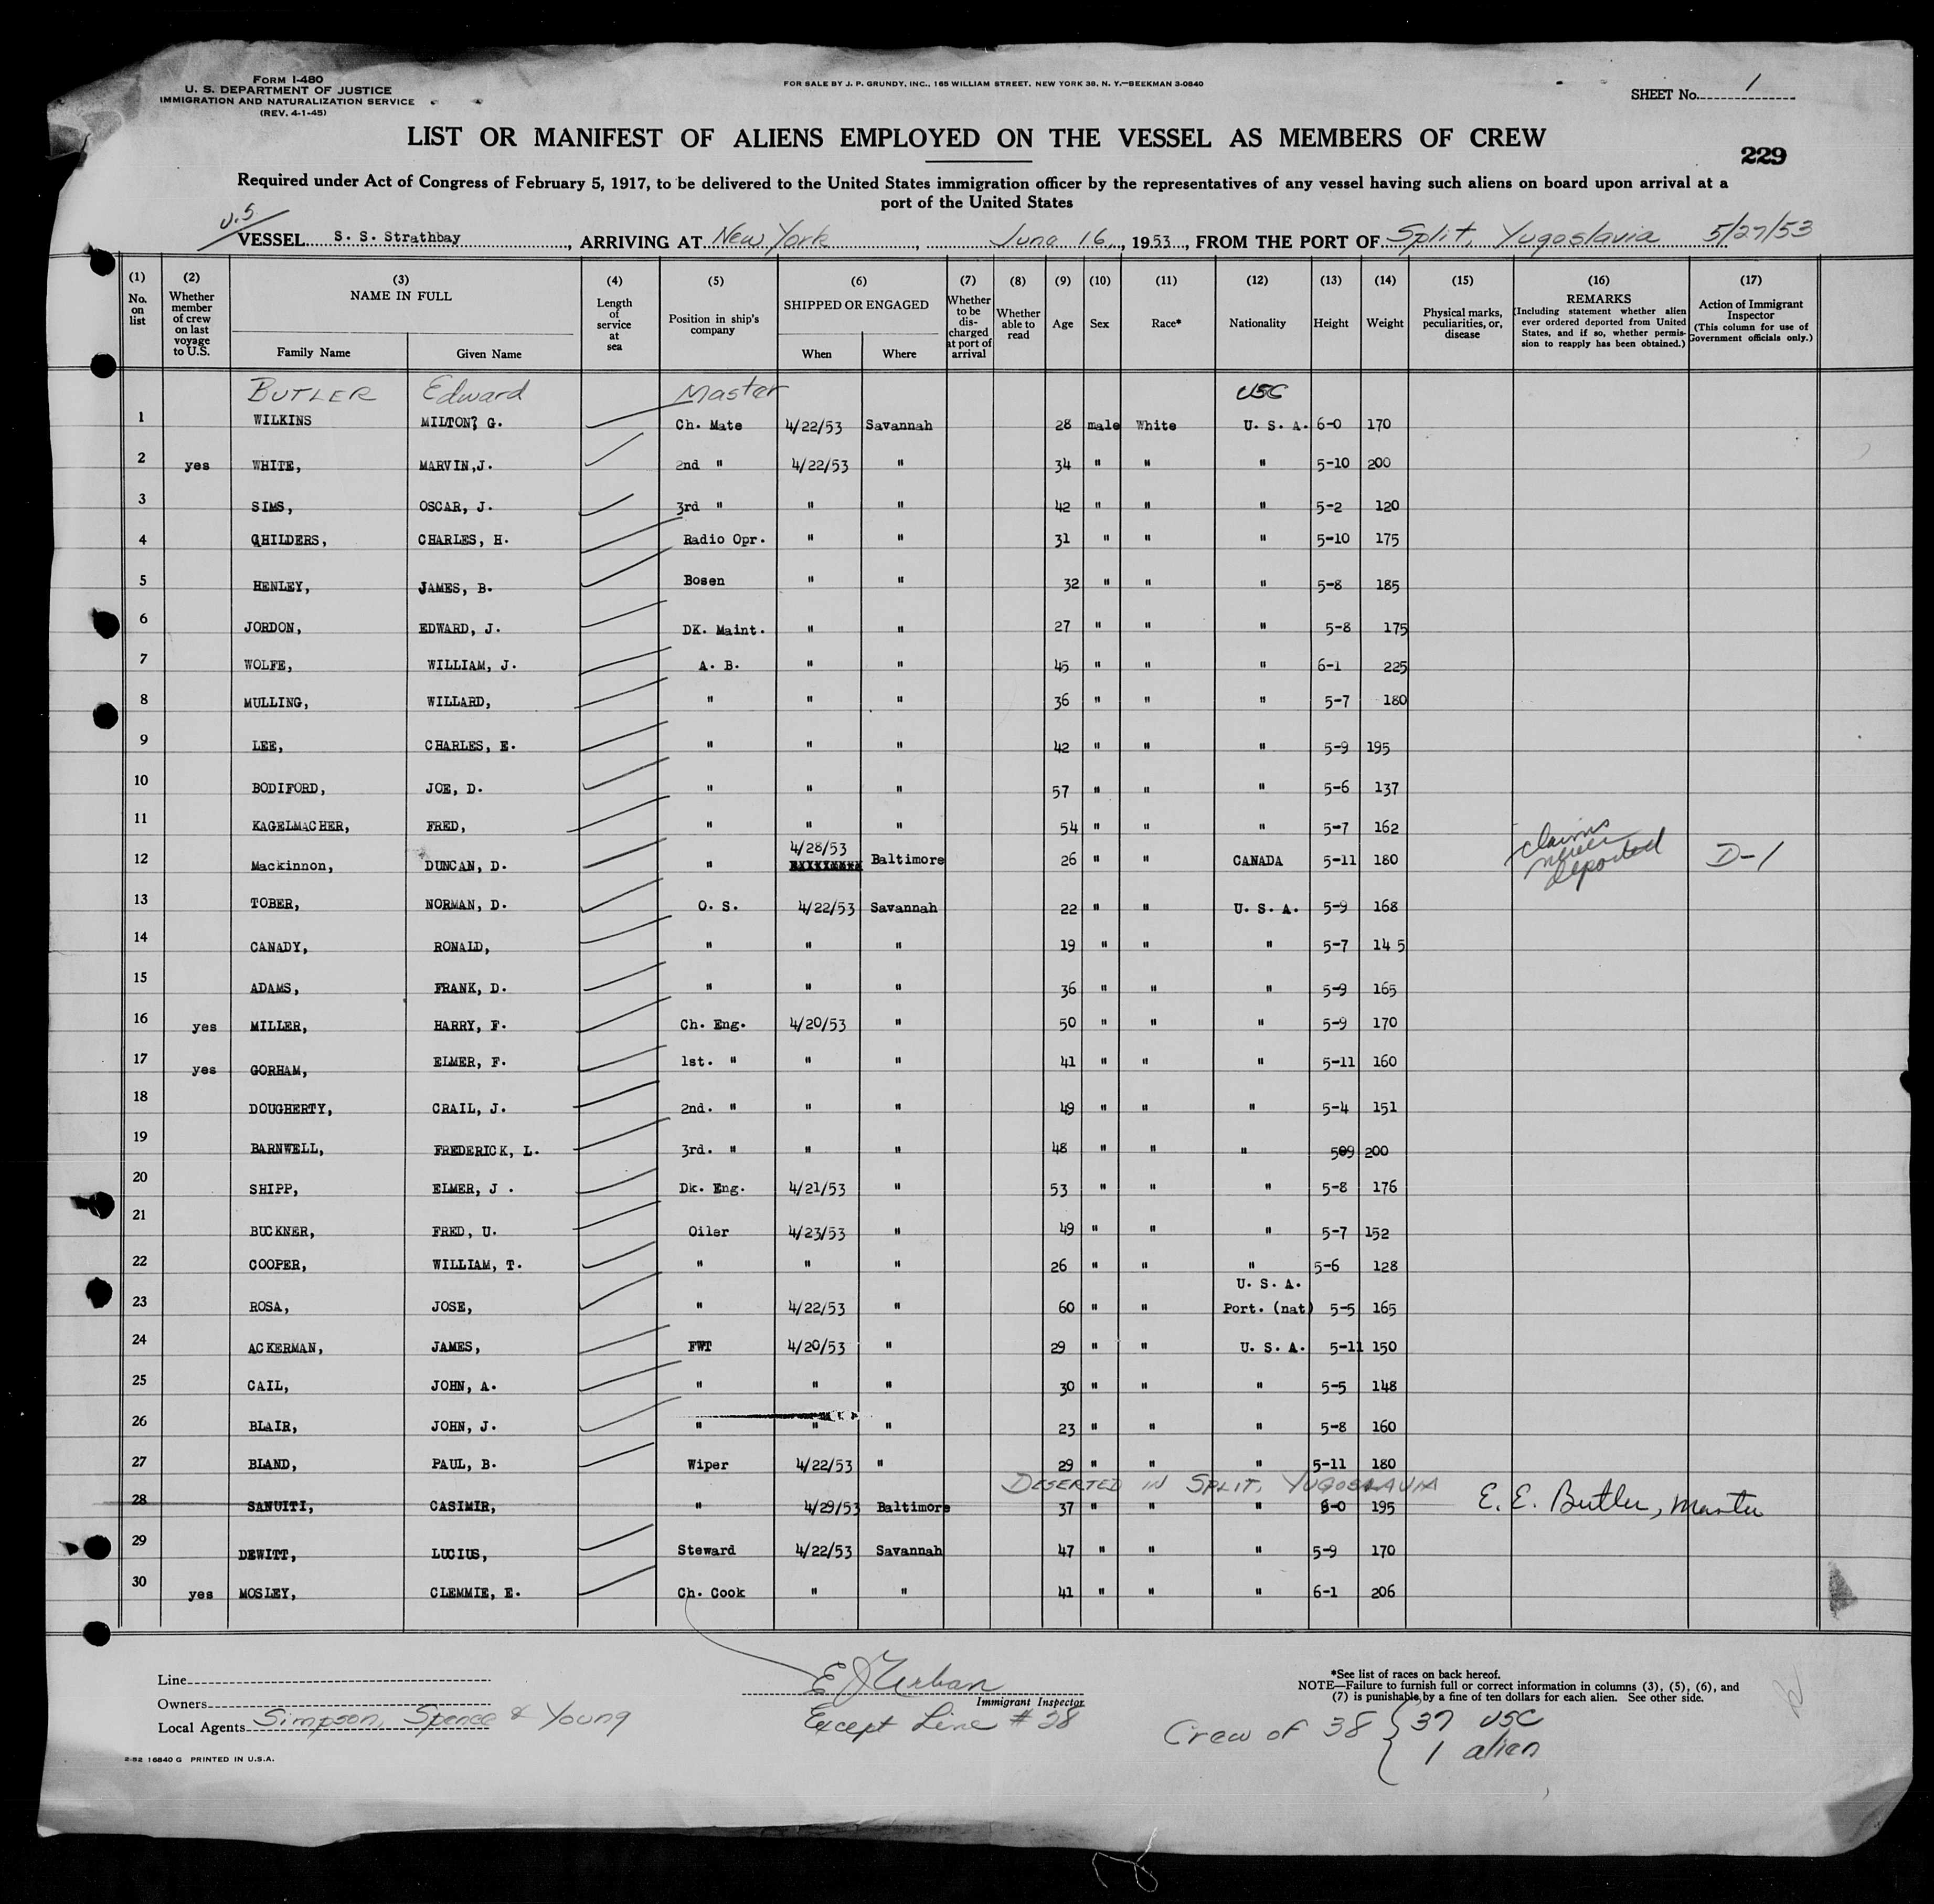 FORM I-480
U. S. DEPARTMENT OF JUSTICE
IMMIGRATION AND NATURALIZATION SERVICE
(REV. 4-1-45)
FOR SALE BY J. P. GRUNDY, INC., 165 WILLIAM STREET, NEW YORK 38, N. Y.—BEEKMAN 3-0840
SHEET No. 1
LIST OR MANIFEST OF ALIENS EMPLOYED ON THE VESSEL AS MEMBERS OF CREW
229
Required under Act of Congress of February 5, 1917, to be delivered to the United States immigration officer by the representatives of any vessel having such aliens on board upon arrival at a
port of the United States
U.S
VESSEL S. S. Strathbay, ARRIVING AT New York, June 16, 1953, FROM THE PORT OF Split, Yugoslavia 5/27/53
(1) No. on list
(2) Whether member of crew on last voyage to U.S.
(3) NAME IN FULL Family Name Given Name
(4) Length of service at sea
(5) Position in ship's company
(6) SHIPPED OR ENGAGED When Where
(7) Whether to be discharged at port of arrival
(8) Whether able to read
(9) Age
(10) Sex
(11) Race*
(12) Nationality
(13) Height
(14) Weight
(15) Physical marks, peculiarities, or, disease
(16) REMARKS (Including statement whether alien ever ordered deported from United States, and if so, whether permission to reapply has been obtained.)
(17) Action of Immigrant Inspector (This column for use of Government officials only.)
BUTLER Edward Master USC
1 WILKINS MILTON? G. Ch. Mate 4/22/53 Savannah 28 male White U. S. A. 6-0 170
2 yes WHITE, MARVIN,J. 2nd " 4/22/53 " 34 " " " 5-10 200
3 SIMS, OSCAR, J. 3rd " " " 42 " " " 5-2 120
4 CHILDERS, CHARLES, H. Radio Opr. " " 31 " " " 5-10 175
5 HENLEY, JAMES, B. Bosen " " 32 " " " 5-8 185
6 JORDON, EDWARD, J. DK. Maint. " " 27 " " " 5-8 175
7 WOLFE, WILLIAM, J. A. B. " " 45 " " " 6-1 225
8 MULLING, WILLARD, " " " 36 " " " 5-7 180
9 LEE, CHARLES, E. " " " 42 " " " 5-9 195
10 BODIFORD, JOE, D. " " " 57 " " " 5-6 137
11 KAGELMACHER, FRED, " " " 54 " " " 5-7 162
12 Mackinnon, DUNCAN, D. " 4/28/53 Baltimore 26 " " CANADA 5-11 180 claims never deported D-1
13 TOBER, NORMAN, D. O. S. 4/22/53 Savannah 22 " " U. S. A. 5-9 168
14 CANADY, RONALD, " " " 19 " " " 5-7 14 5
15 ADAMS, FRANK, D. " " " 36 " " " 5-9 165
16 yes MILLER, HARRY, F. Ch. Eng. 4/20/53 " 50 " " " 5-9 170
17 yes GORHAM, ELMER, F. 1st. " " " 41 " " " 5-11 160
18 DOUGHERTY, CRAIL, J. 2nd. " " " 49 " " " 5-4 151
19 BARNWELL, FREDERICK, L. 3rd. " " " 48 " " " 509 200
20 SHIPP, ELMER, J . Dk. Eng. 4/21/53 " 53 " " " 5-8 176
21 BUCKNER, FRED, U. Oiler 4/23/53 " 49 " " " 5-7 152
22 COOPER, WILLIAM, T. " " " 26 " " " 5-6 128
23 ROSA, JOSE, " 4/22/53 " 60 " " U. S. A. Port. (nat) 5-5 165
24 ACKERMAN, JAMES, FWT 4/20/53 " 29 " " U. S. A. 5-11 150
25 CAIL, JOHN, A. " " " 30 " " " 5-5 148
26 BLAIR, JOHN, J. " " " 23 " " " 5-8 160
27 BLAND, PAUL, B. Wiper 4/22/53 " 29 " " " 5-11 180
DESERTED IN SPLIT, YUGOSLAVIA
28 SANUITI, CASIMIR, " 4/29/53 Baltimore 37 " " " 6-0 195 E. E. Butler, Master
29 DEWITT, LUCIUS, Steward 4/22/53 Savannah 47 " " " 5-9 170
30 yes MOSLEY, CLEMMIE, E. Ch. Cook " " 41 " " " 6-1 206
Line
Owners
Local Agents Simpson, Spence & Young
E J Urban
Immigrant Inspector
Except Line # 28
*See list of races on back hereof.
NOTE—Failure to furnish full or correct information in columns (3), (5), (6), and
(7) is punishable by a fine of ten dollars for each alien. See other side.
Crew of 38 { 37 USC
1 alien
2-52 16840 G PRINTED IN U.S.A.